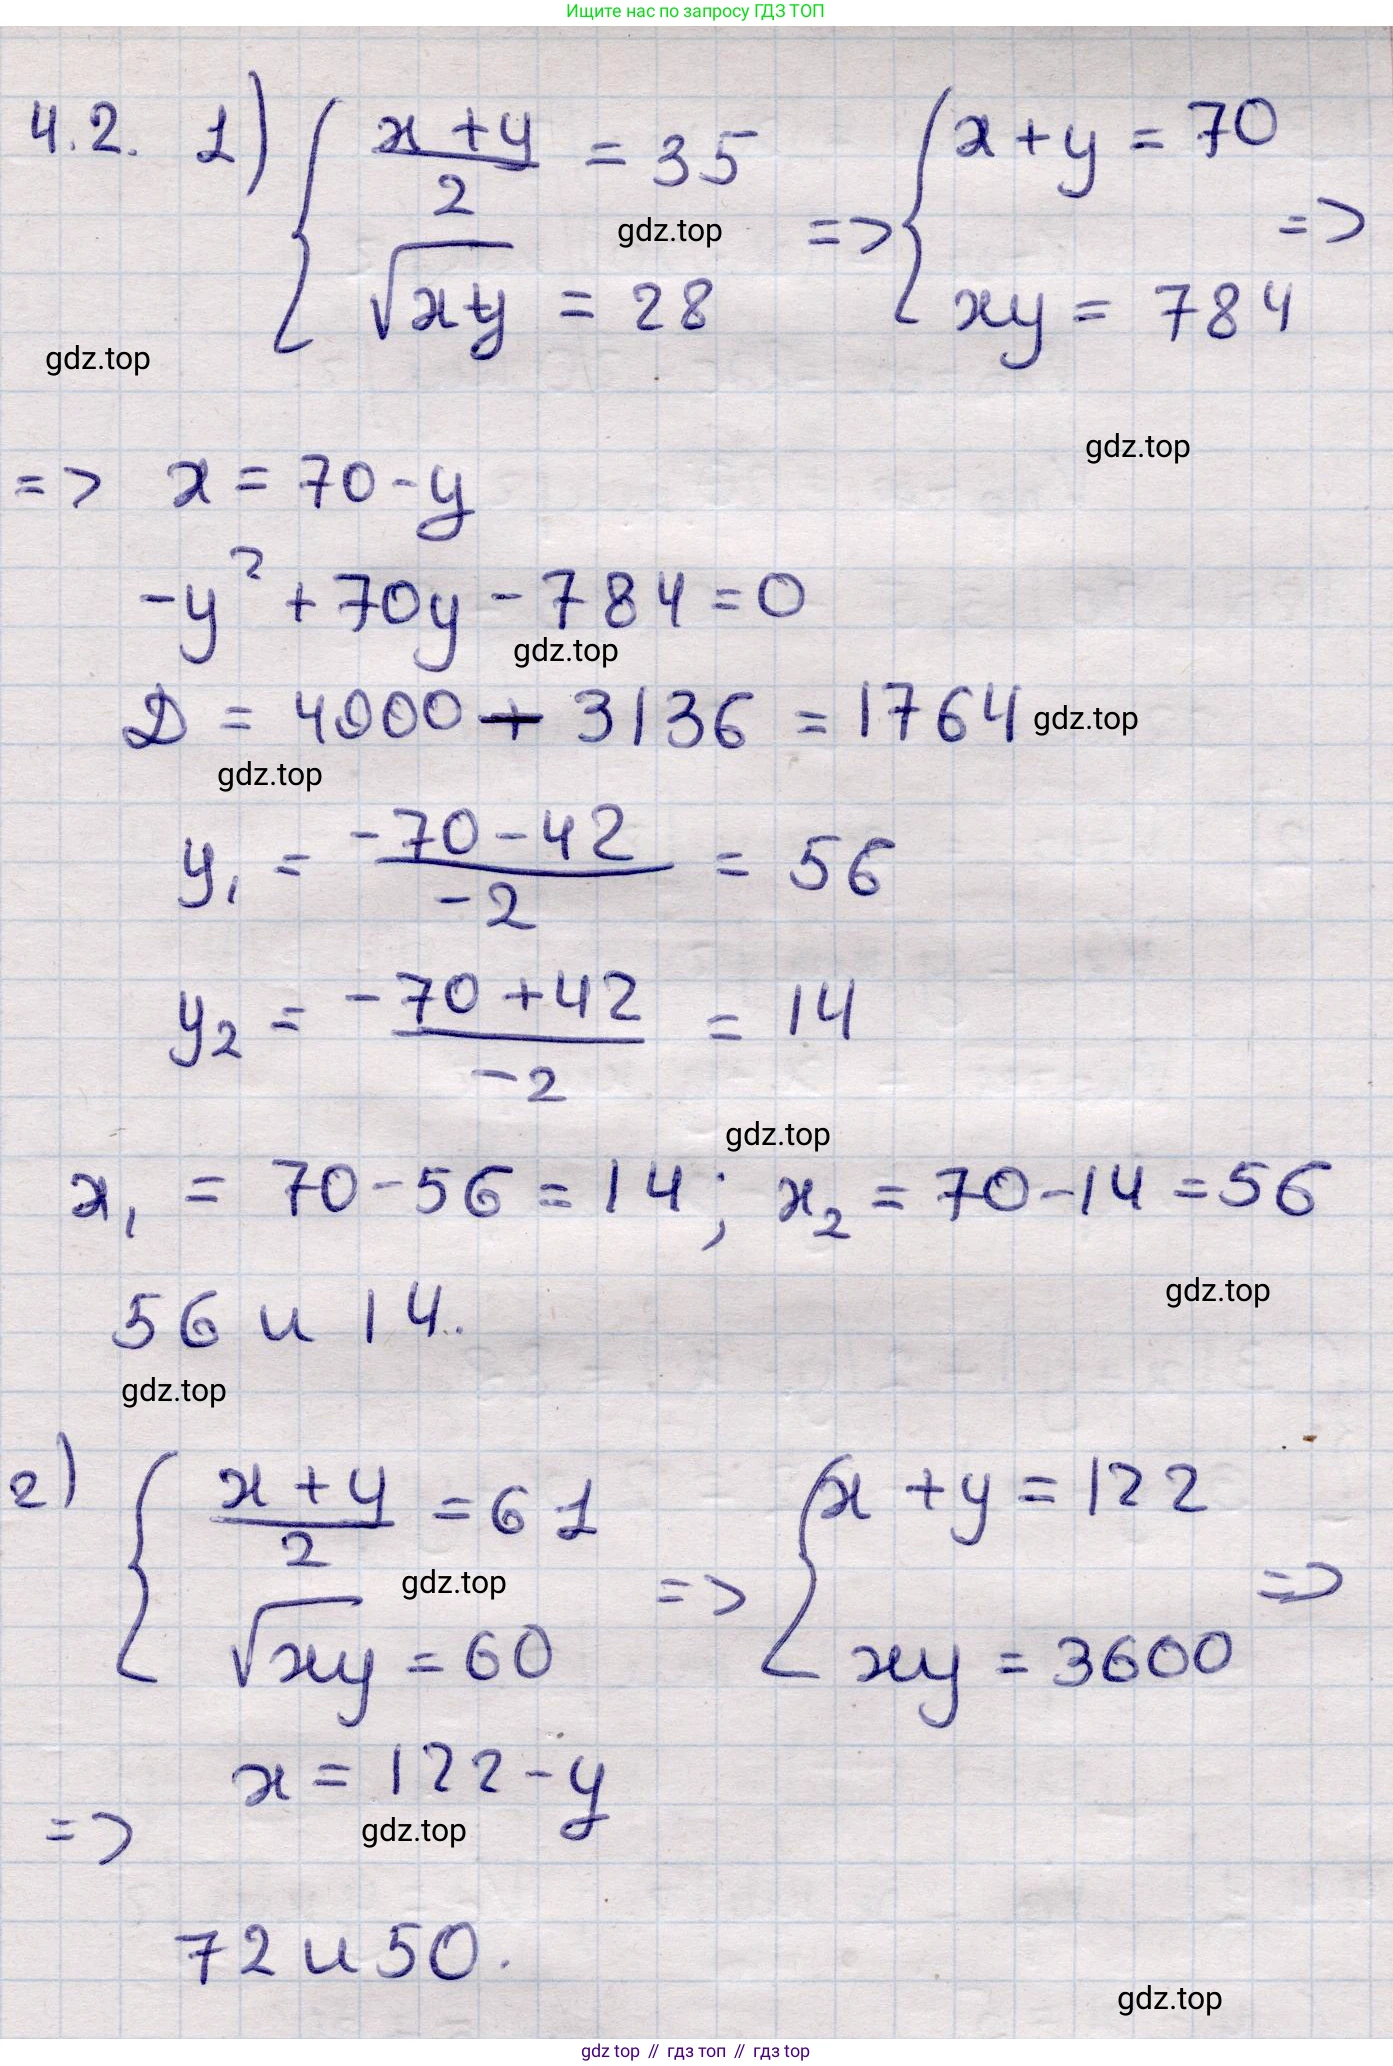 Ищите нас по запросу ГДЗ ТОП
4.2. 1) { (x+y)/2 = 35 => { x+y = 70 =>
gdz.top
√xy = 28 xy = 784
gdz.top
gdz.top
=> x = 70-y
-y² + 70y - 784 = 0
gdz.top
D = 4900 - 3136 = 1764 gdz.top
gdz.top
y₁ = (-70-42)/-2 = 56
y₂ = (-70+42)/-2 = 14
gdz.top
x₁ = 70-56 = 14; x₂ = 70-14 = 56
gdz.top
56 и 14.
gdz.top
2) { (x+y)/2 = 61 => { x+y = 122 =>
gdz.top
√xy = 60 xy = 3600
=> x = 122-y
gdz.top
72 и 50.
gdz.top
gdz top // гдз топ // гдз top